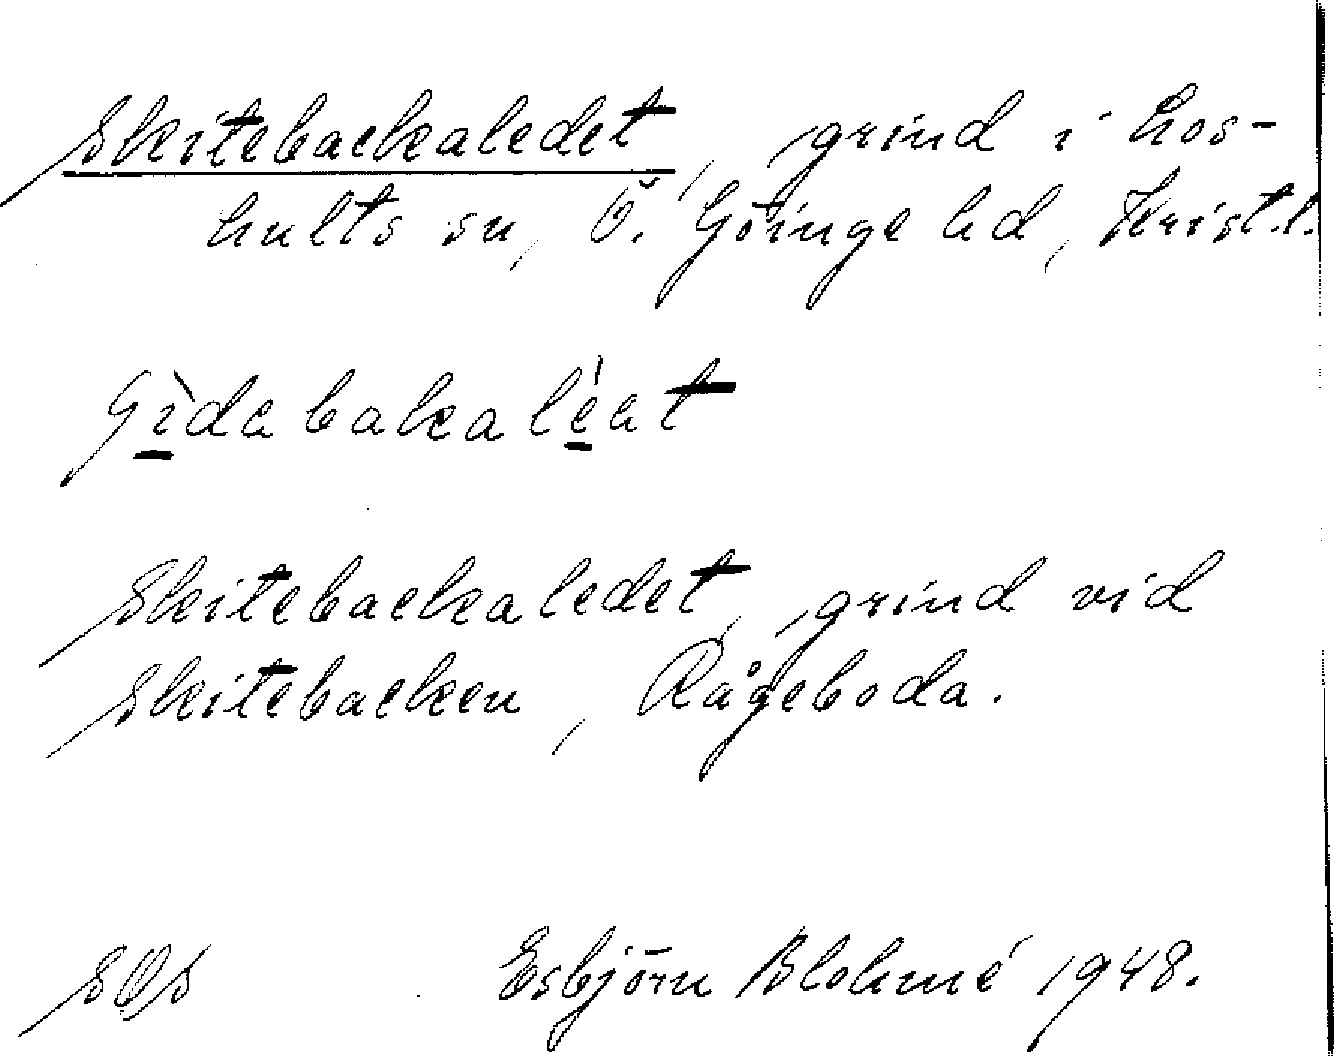 Skitebackaledet, grind i Los-
hults sn, Ö. Göinge hd, Krist.l.
Gìdabakaléat
Skitebackaledet, grind vid
Skitebacken, Rågeboda.
SOS Esbjörn Blohmé 1948.